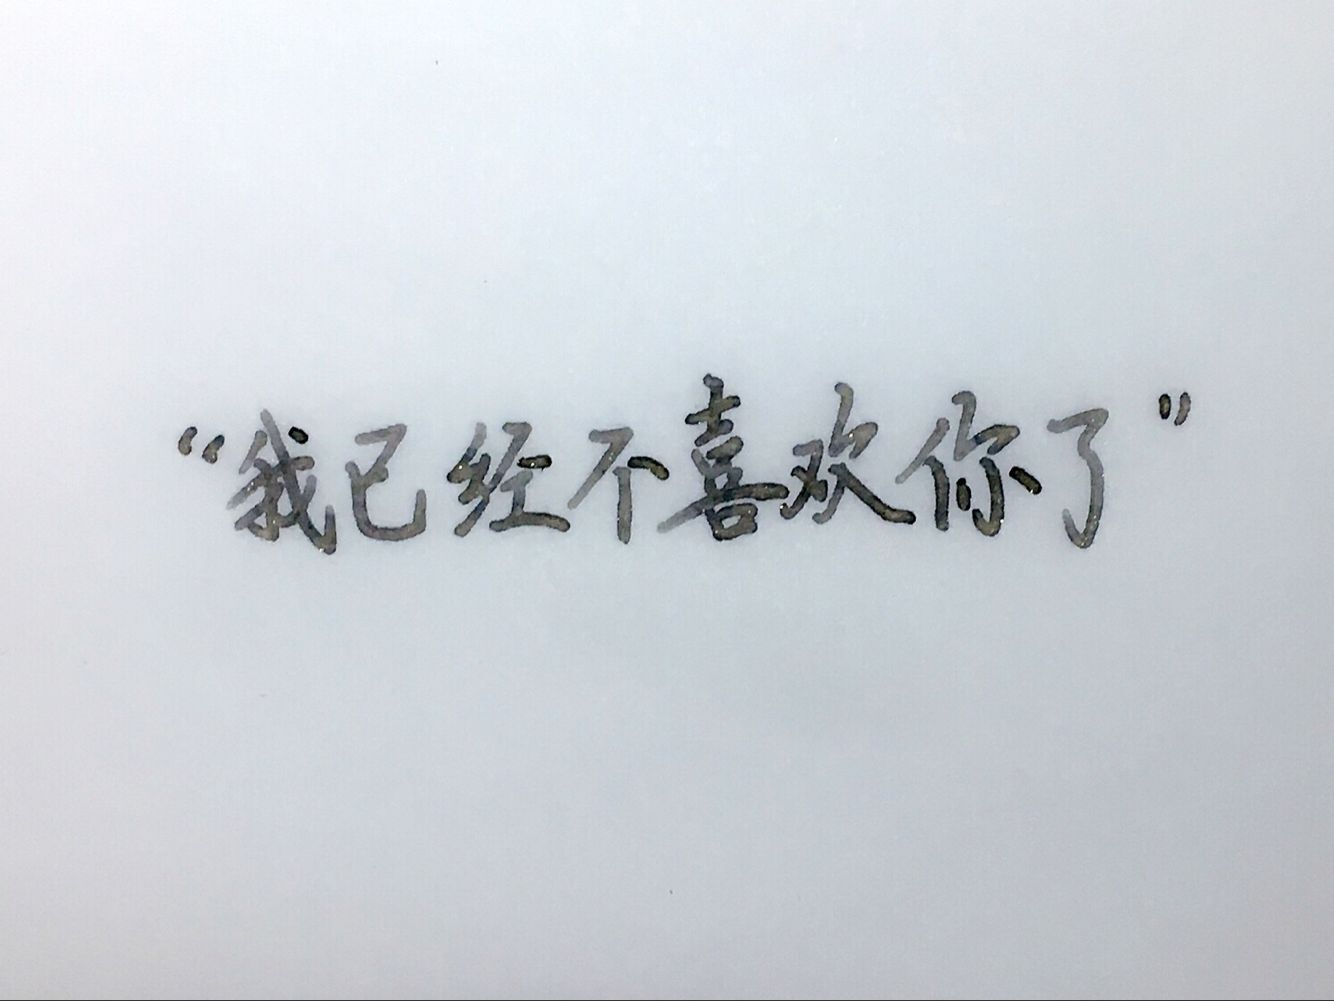 “我已经不喜欢你了”